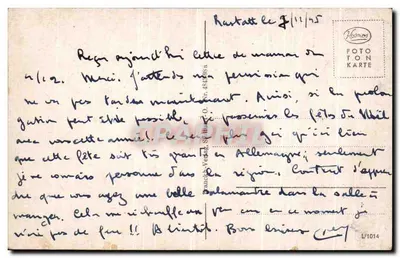 Rastatt le 7/12/45
Reçu aujourd'hui lettre de maman du
4/12. Merci. J'attends ma permission qui
ne va pas tarder maintenant. Ainsi, si la prolon
gation peut être possible, je passerai les fêtes de Noël
avec vous cette année!!
que cette fête soit très grande en Allemagne; seulement
je ne connais personne dans la région. Content d'appren
dre que vous ayez une belle salamandre dans la salle à
manger. Cela me réchauffera un peu car en ce moment je
n'ai pas de feu!! A bientôt. Bons baisers
FOTO
TON
KARTE
L/1014